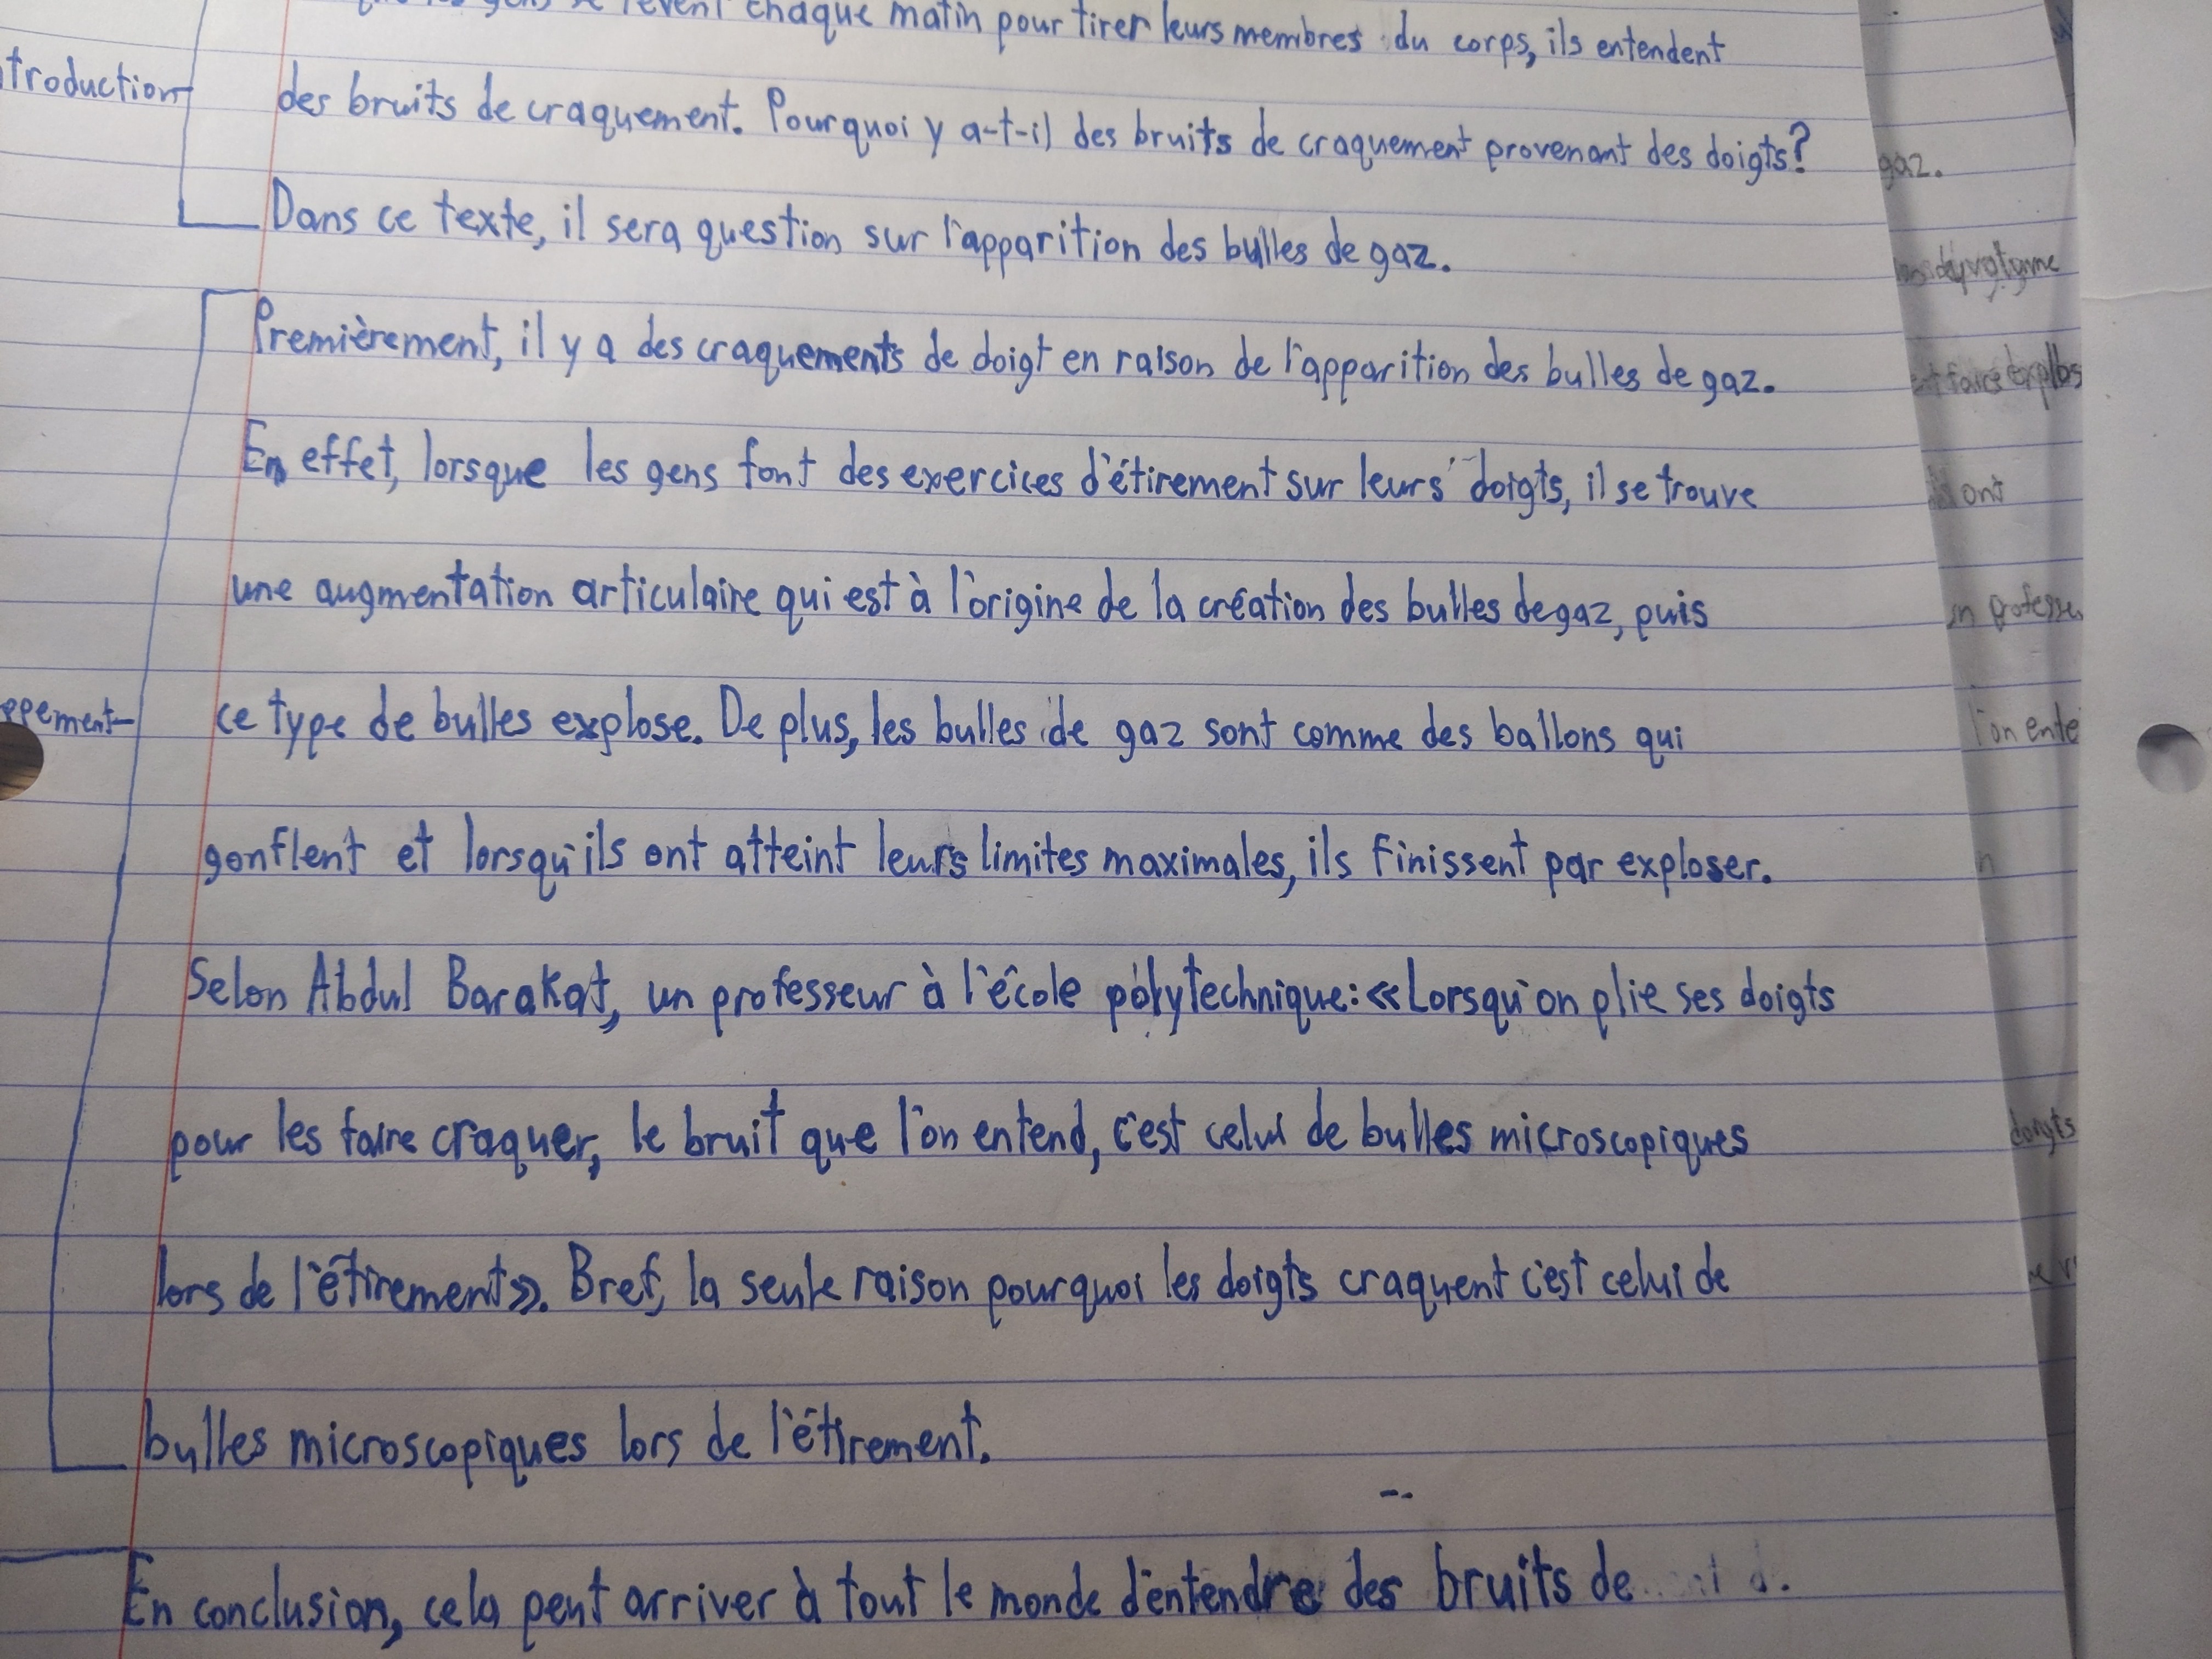 chaque matin pour tirer leurs membres du corps, ils entendent
troduction
des bruits de craquement. Pourquoi y a-t-il des bruits de craquement provenant des doigts?
gaz.
Dans ce texte, il sera question sur l'apparition des bulles de gaz.
Premièrement, il y a des craquements de doigt en raison de l'apparition des bulles de gaz.
En effet, lorsque les gens font des exercices d'étirement sur leurs doigts, il se trouve
ont
une augmentation articulaire qui est à l'origine de la création des bulles de gaz, puis
ppement
ce type de bulles explose. De plus, les bulles de gaz sont comme des ballons qui
l'on ente
gonflent et lorsqu'ils ont atteint leurs limites maximales, ils finissent par exploser.
n
Selon Abdul Barakat, un professeur à l'école polytechnique: «Lorsqu'on plie ses doigts
pour les faire craquer, le bruit que l'on entend, c'est celui de bulles microscopiques
doigts
lors de l'étirement». Bref, la seule raison pourquoi les doigts craquent c'est celui de
bulles microscopiques lors de l'étirement.
En conclusion, cela peut arriver à tout le monde d'entendre des bruits de